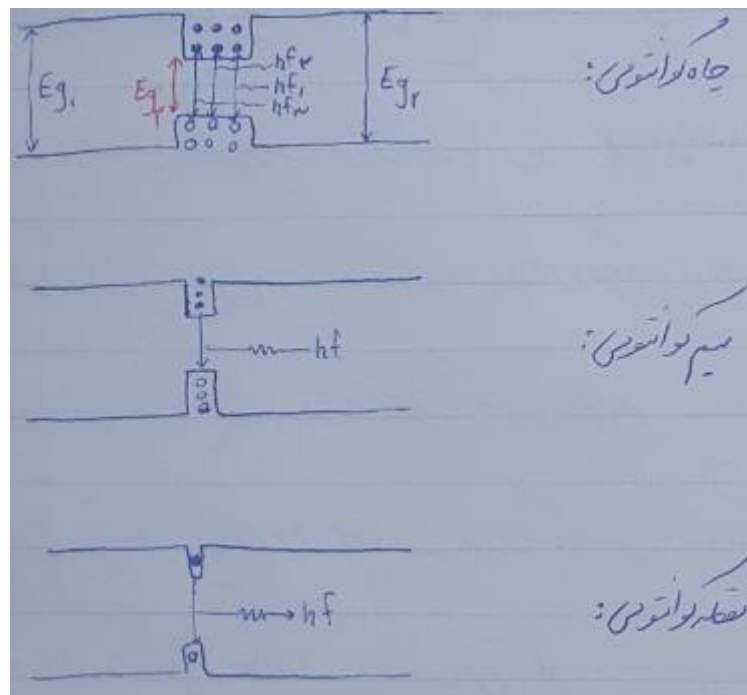 چاه کوانتومی:
Eg۱
Eg
hf۲
hf۱
hf۳
Eg۲
سیم کوانتومی:
hf
نقطه کوانتومی:
hf